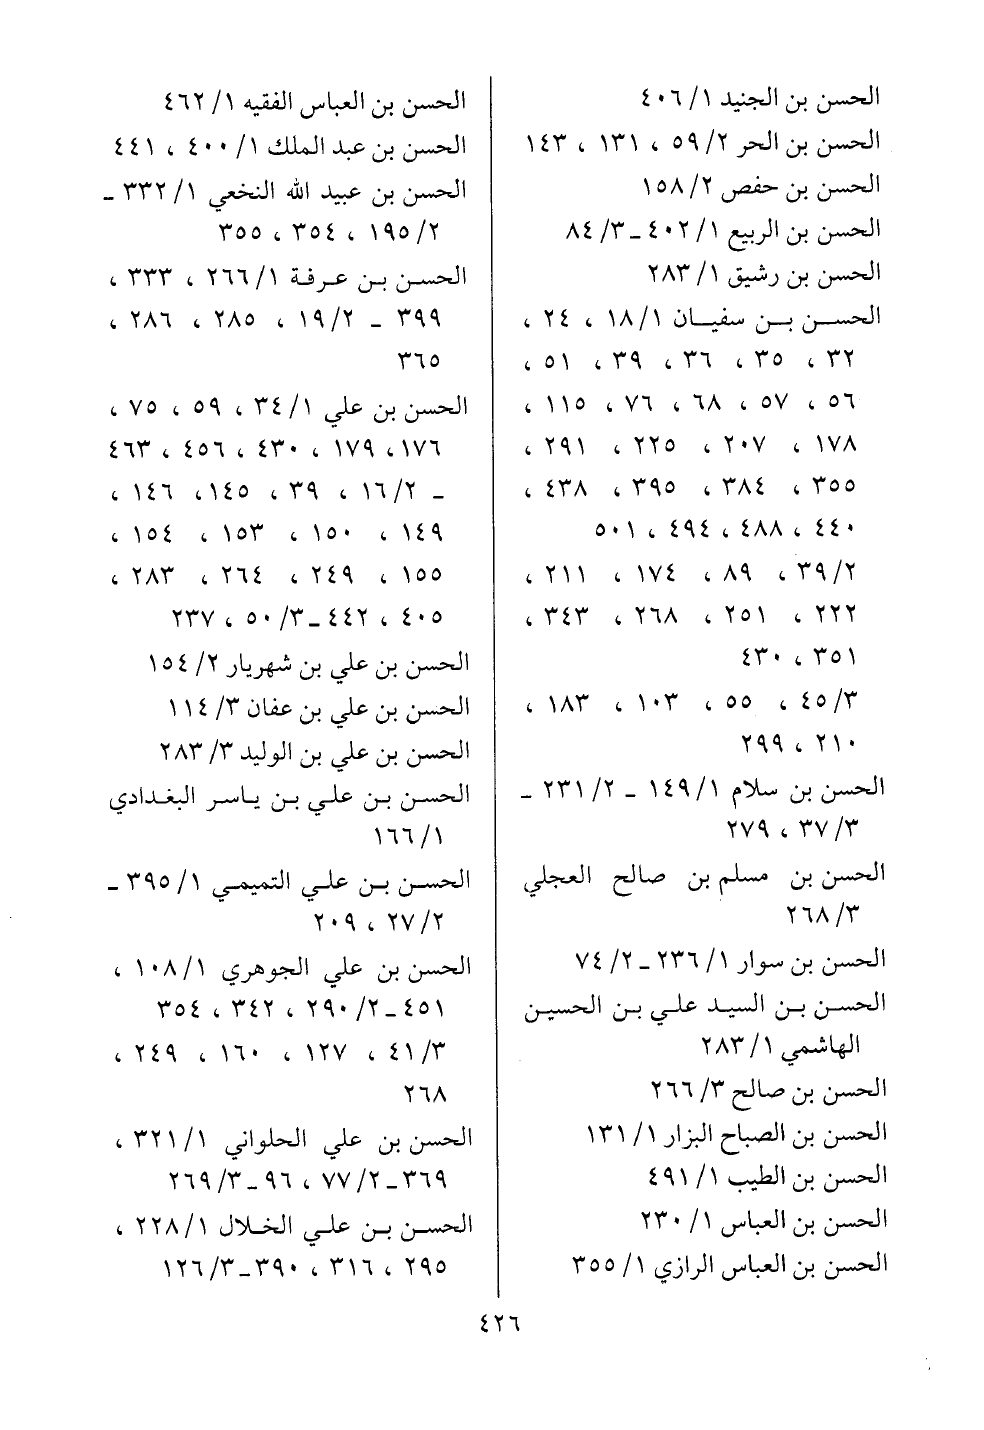 الحسن بن الجنيد ١/ ٤٠٦
الحسن بن الحر ٢/ ٥٩ ، ١٣١ ، ١٤٣
الحسن بن حفص ٢/ ١٥٨
الحسن بن الربيع ١/ ٤٠٢ ـ ٣/ ٨٤
الحسن بن رشيق ١/ ٢٨٣
الحسن بن سفيان ١/ ١٨ ، ٢٤ ،
٣٢ ، ٣٥ ، ٣٦ ، ٣٩ ، ٥١ ،
٥٦ ، ٥٧ ، ٦٨ ، ٧٦ ، ١١٥ ،
١٧٨ ، ٢٠٧ ، ٢٢٥ ، ٢٩١ ،
٣٥٥ ، ٣٨٤ ، ٣٩٥ ، ٤٣٨ ،
٤٤٠ ، ٤٨٨ ، ٤٩٤ ، ٥٠١
٢/ ٣٩ ، ٨٩ ، ١٧٤ ، ٢١١ ،
٢٢٢ ، ٢٥١ ، ٢٦٨ ، ٣٤٣ ،
٣٥١ ، ٤٣٠
٣/ ٤٥ ، ٥٥ ، ١٠٣ ، ١٨٣ ،
٢١٠ ، ٢٩٩
الحسن بن سلام ١/ ١٤٩ ـ ٢/ ٢٣١ ـ
٣/ ٣٧ ، ٢٧٩
الحسن بن مسلم بن صالح العجلي
٣/ ٢٦٨
الحسن بن سوار ١/ ٢٣٦ ـ ٢/ ٧٤
الحسن بن السيد علي بن الحسين
الهاشمي ١/ ٢٨٣
الحسن بن صالح ٣/ ٢٦٦
الحسن بن الصباح البزار ١/ ١٣١
الحسن بن الطيب ١/ ٤٩١
الحسن بن العباس ١/ ٢٣٠
الحسن بن العباس الرازي ١/ ٣٥٥
الحسن بن العباس الفقيه ١/ ٤٦٢
الحسن بن عبد الملك ١/ ٤٠٠ ، ٤٤١
الحسن بن عبيد الله النخعي ١/ ٣٣٢ ـ
٢/ ١٩٥ ، ٣٥٤ ، ٣٥٥
الحسن بن عرفة ١/ ٢٦٦ ، ٣٣٣ ،
٣٩٩ ـ ٢/ ١٩ ، ٢٨٥ ، ٢٨٦ ،
٣٦٥
الحسن بن علي ١/ ٣٤ ، ٥٩ ، ٧٥ ،
١٧٦ ، ١٧٩ ، ٤٣٠ ، ٤٥٦ ، ٤٦٣
ـ ٢/ ١٦ ، ٣٩ ، ١٤٥ ، ١٤٦ ،
١٤٩ ، ١٥٠ ، ١٥٣ ، ١٥٤ ،
١٥٥ ، ٢٤٩ ، ٢٦٤ ، ٢٨٣ ،
٤٠٥ ، ٤٤٢ ـ ٣/ ٥٠ ، ٢٣٧
الحسن بن علي بن شهريار ٢/ ١٥٤
الحسن بن علي بن عفان ٣/ ١١٤
الحسن بن علي بن الوليد ٣/ ٢٨٣
الحسن بن علي بن ياسر البغدادي
١/ ١٦٦
الحسن بن علي التميمي ١/ ٣٩٥ ـ
٢/ ٢٧ ، ٢٠٩
الحسن بن علي الجوهري ١/ ١٠٨ ،
٤٥١ ـ ٢/ ٢٩٠ ، ٣٤٢ ، ٣٥٤
٣/ ٤١ ، ١٢٧ ، ١٦٠ ، ٢٤٩ ،
٢٦٨
الحسن بن علي الحلواني ١/ ٣٢١ ،
٣٦٩ ـ ٢/ ٧٧ ، ٩٦ ـ ٣/ ٢٦٩
الحسن بن علي الخلال ١/ ٢٢٨ ،
٢٩٥ ، ٣١٦ ، ٣٩٠ ـ ٣/ ١٢٦
٤٢٦